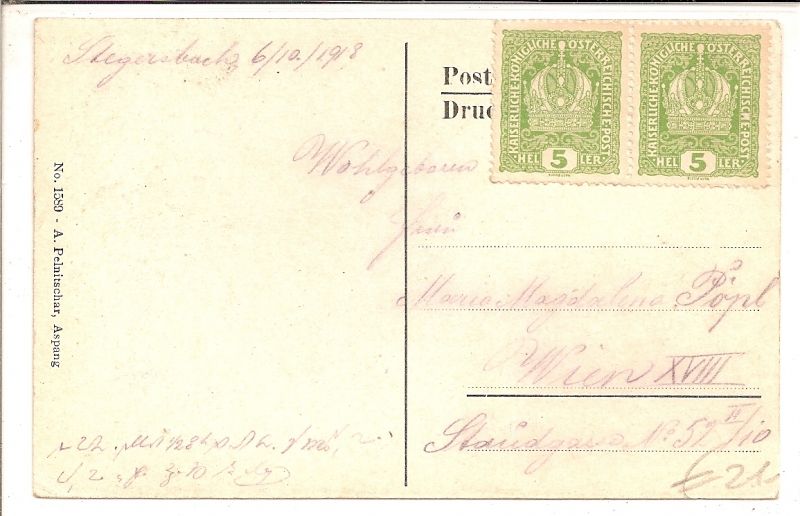 Stegersbach, 6/10./1918
Post
Druc
KAISERLICHE KÖNIGLICHE ÖSTERREICHISCHE POST
5
HEL LER
KAISERLICHE KÖNIGLICHE ÖSTERREICHISCHE POST
5
HEL LER
Wohlgeboren
Frau
Maria Magdalena Pöpl
Wien XVIII
Staudgasse No. 52 II/10
No. 1589 - A. Pelnitschar, Aspang